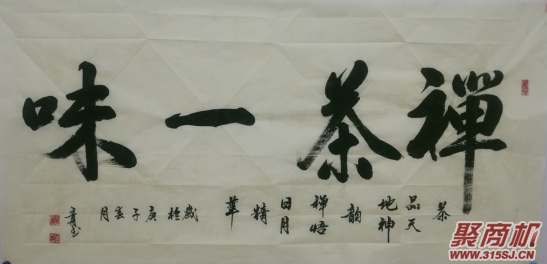 禪茶一味
茶
品天
地神
韵
禪悟
日月
精
華
歲
庚
子
月
聚商机
www.315SJ.COM